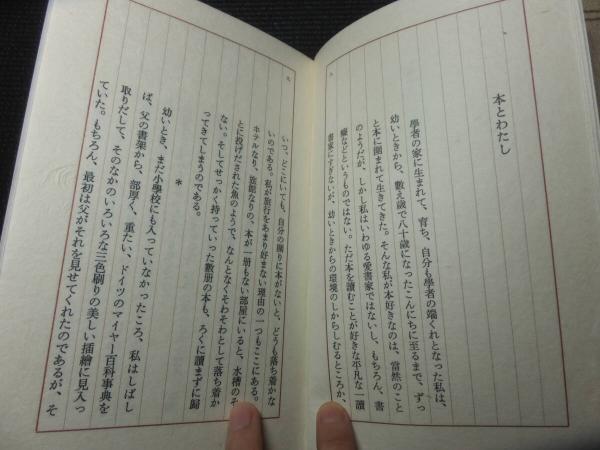 本とわたし
學者の家に生まれて、育ち、自分も學者の端くれとなった私は、
幼いときから、數え歳で八十歳になったこんにちに至るまで、ずっ
と本に圍まれて生きてきた。そんな私が本好きなのは、當然のこと
のようだが、しかし私はいわゆる愛書家ではないし、もちろん、書
癡などというものではない。ただ本を讀むことが好きな平凡な一讀
書家にすぎないが、幼いときからの環境のしからしむるところか、
いつ、どこにいても、自分の周りに本がないと、どうも落ち着かな
いのである。私が旅行をあまり好まない理由の一つもここにある。
ホテルなり、旅館なりの、本が一册もない部屋にいると、水槽のそ
とに投げだされた魚のようで、なんとなくそわそわとして落ち着か
ない。そしてせっかく持っていった數册の本も、ろくに讀まずに歸
ってきてしまうのである。
*
幼いとき、まだ小學校にも入っていなかったころ、私はしばし
ば、父の書架から、部厚く、重たい、ドイツのマイヤー百科事典を
取りだして、そのなかのいろいろな三色刷りの美しい插繪に見入っ
ていた。もちろん、最初は父がそれを見せてくれたのであるが、そ
八
九